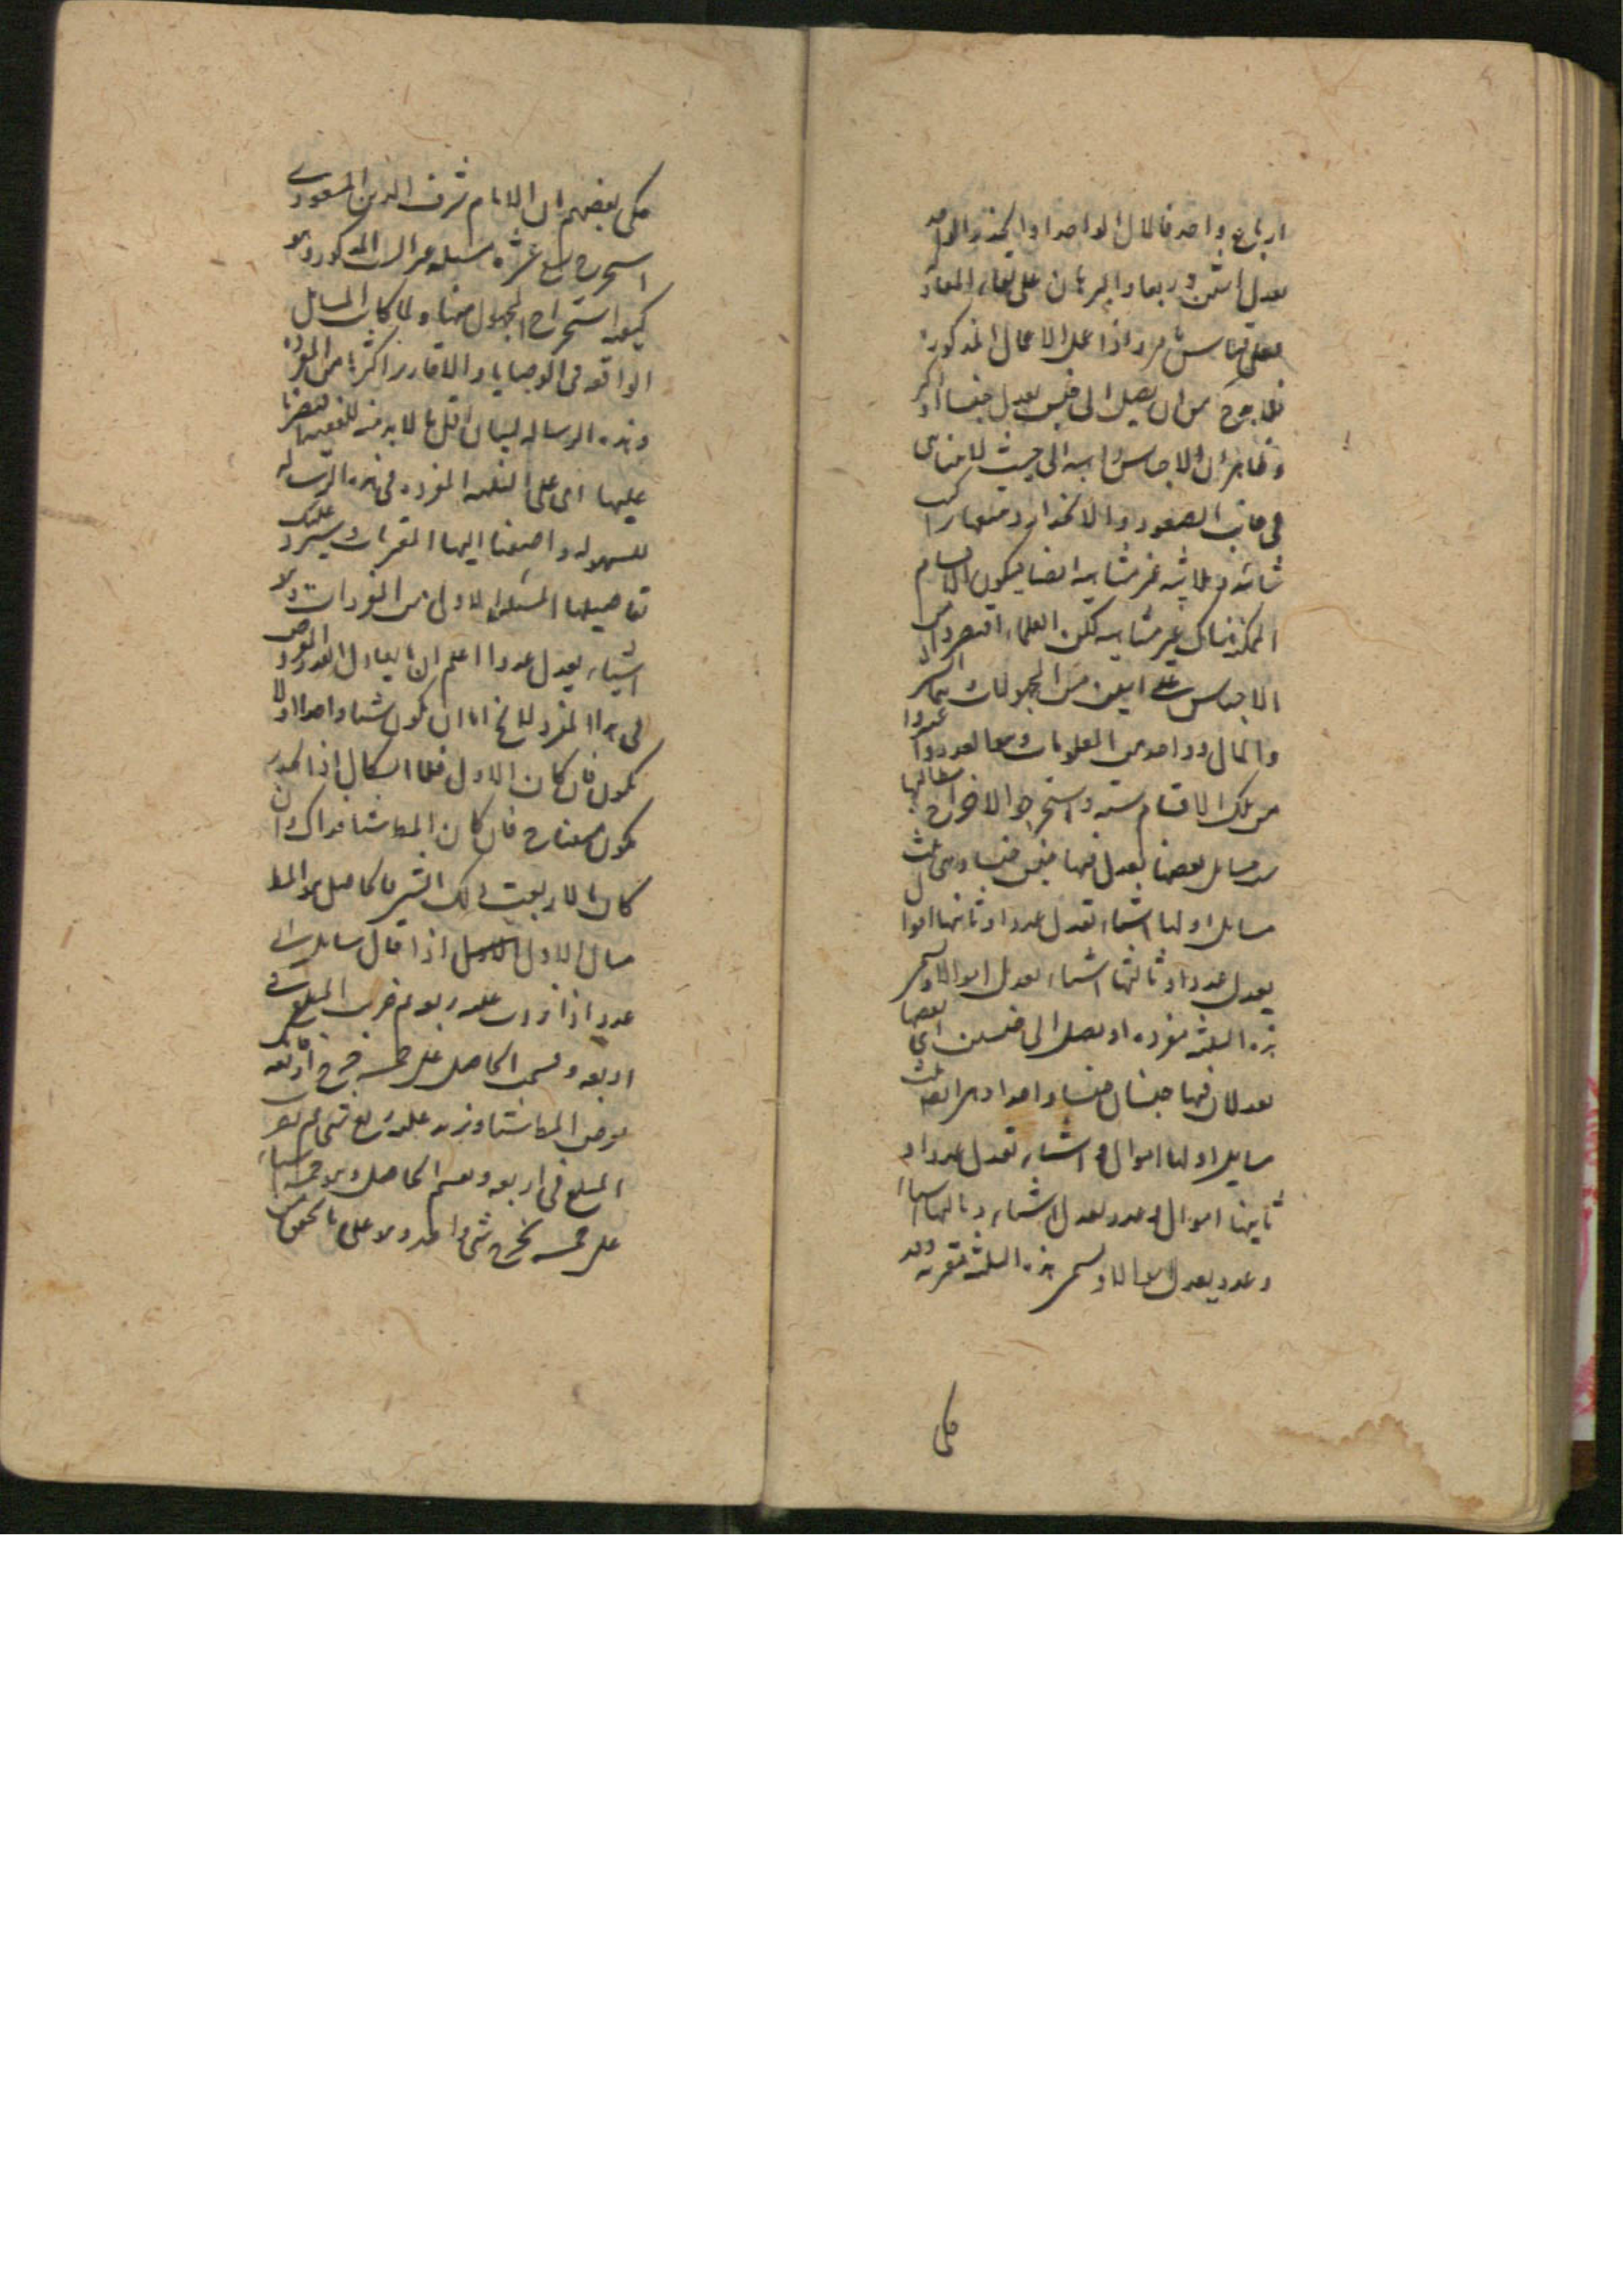 ارباع واحد فالمال الواحد او الجذر الواحد
يعدل اثنين وربعا والبرهان على بقاء المعادلة
على قياس ما مر واذا عمل الاعمال المذكورة
فلا يخرج من ان يصل الى جنس يعدل جنسا آخر
وظاهر ان الاجناس ذاهبة الى حيث لا تتناهى
فى جانب الصعود والانحدار وتتعاد تراكيب
ثنائية وثلاثية غير متناهية ايضا فيكون الاقسام
الممكنة هناك غير متناهية لكن العلماء اقتصروا من
الاجناس على اثنين من المجهولات هما الشى
والمال وواحد من المعلومات وهو العدد وافردوا
من تلك الاقسام ستة واستخراج
ست مسائل بعضها يعدل فيها جنس جنسا وهى ثلث
مسايل اولها اشياء تعدل عددا وثانيها اموال
يعدل عددا وثالثها اشياء يعدل اموالا وتسمى
هذه الثلثة مفردة او يصل الى جنسين اى بعضها
يعدلان فيها جنسان جنسا واحدا وهى ايضا ثلث
مسايل اولها اموال واشياء تعدل عددا و
ثانيها اموال وعدد يعدل اشياء وثالثها اشياء
وعدد يعدل اموالا وتسمى هذه الثلثة مقترنة وقد
حكى
حكى بعضهم ان الامام شرف الدين المسعودى
استخرج تسع عشرة مسئلة غير الست المذكورة وبين
كيفية استخراج المجهول منها ولما كانت المسايل
الواقعة فى الوصايا والاقارير اكثرها من المفردة
وهذه الرسالة لبيان اقل ما لا بد منه للفقيه اقتصرنا
عليها اى على الثلثة المفردة فى هذه الرسالة
للسهولة واضفنا اليها المقترنات وسيرد عليك
تفاصيلها المسئلة الاولى من المفردات وهى
اشياء يعدل عددا اعلم ان ما يعادل العدد المفروض
فى هذا المفرد لا يخ اما ان يكون شيئا واحدا او لا
يكون فان كان الاول فلا اشكال اذا العدد
يكون معناه فان كان المط شيئا فذاك وان
كان ما لا يعتبر فى ذلك الشى فالحاصل هو المط
مثال الاول اذا قال سايل اى
عدد اذا زدت عليه ربعه ثم ضرب المبلغ فى
اربعة وقسمت الحاصل على خمسة خرج اربعة
نفرض المط شيئا ونزيد عليه ربع شى ثم نضرب
المبلغ فى اربعة ونقسم الحاصل وهو خمسة اشياء
على خمسة يخرج شى واحد